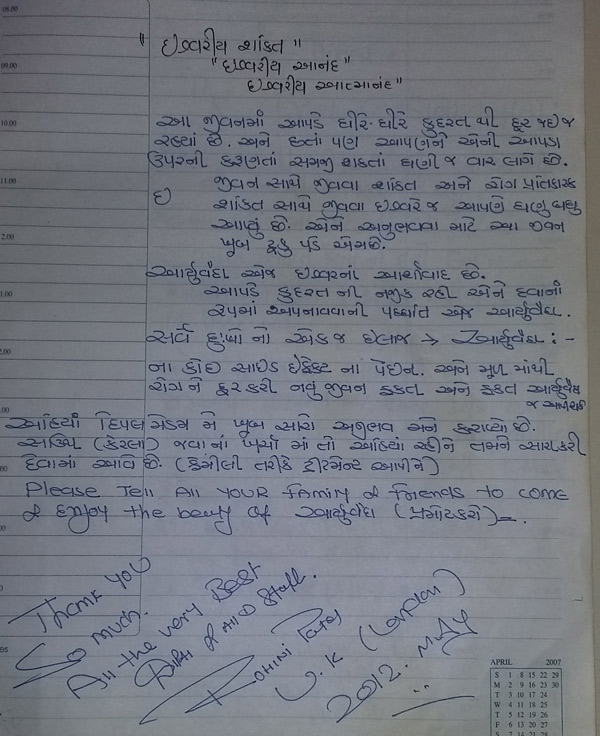 08.00
" ઇશ્વરીય શક્તિ "
" ઇશ્વરીય આનંદ "
ઇશ્વરીય આત્માનંદ "
09.00
10.00
આ જીવનમાં આપણે ધીરે-ધીરે કુદરત થી દૂર જઇ જ
રહ્યાં છે. અને છતાં પણ આપણને એની આપણા
ઉપરની કરુણતાં સમજી શકતાં ઘણી જ વાર લાગે છે.
11.00
જીવન સાથે જીવવા શક્તિ અને રોગ પ્રતિકારક
શક્તિ સાથે જીવવા ઇશ્વરે જ આપણે ઘણું બધુ
આપ્યું છે. એને અનુભવવા માટે આ જીવન
2.00
ખૂબ ટુંકુ પડે એમ છે.
આર્યુવેદા એજ ઇશ્વરનાં આર્શીવાદ છે.
1.00
આપણે કુદરત ની નજીક રહી એને દવાનાં
રૂપમાં અપનાવવાની પધ્ધતિ એજ આર્યુવેદા.
સર્વ દુઃખો નો એક જ ઇલાજ → આર્યુવેદા : –
2.00
ના કોઇ સાઇડ ઇફેક્ટ ના પેઇન. અને મૂળ માંથી
રોગ ને દૂર કરી નવું જીવન ફક્ત અને ફક્ત આર્યુવેદ
જ આપી શકે
.00
અહિંયાં દિપલ મેડમ મે ખૂબ સારો અનુભવ મને કરાવ્યો છે.
(કેરલા) જવાનાં ખર્ચા માં તો અહિંયાં રહીને તમને સારા કરી
દેવામાં આવે છે. (ફેમીલી તરીકે ટ્રીટમેન્ટ આપીને)
Please Tell All YOUR family & friends to come
& Enjoy the beauty of આર્યુવેદા
Thank YOU
So much.
All the very Best
& All Staff.
ROHINI Patel
U.K (London)
2012. May
APRIL 2007
S 1 8 15 22 29
M 2 9 16 23 30
T 3 10 17 24
W 4 11 18 25
T 5 12 19 26
F 6 13 20 27
S 7 14 21 28